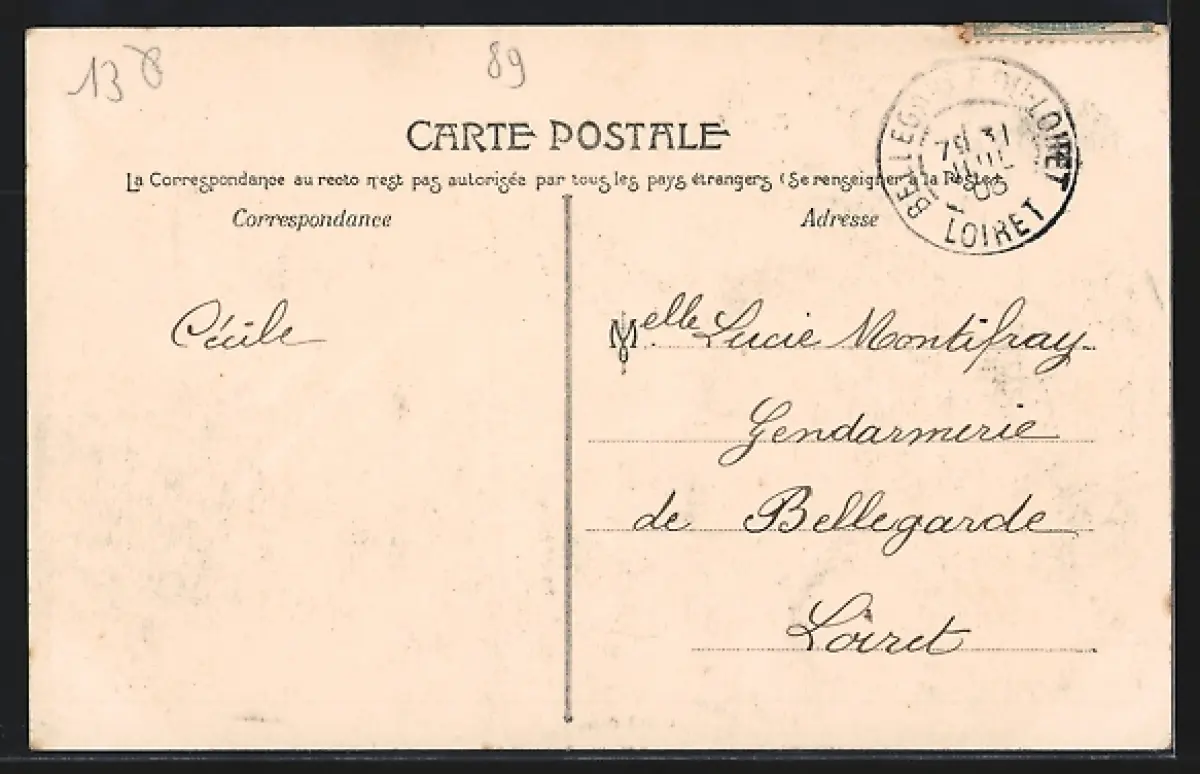 138
89
CARTE POSTALE
La Correspondance au recto n'est pas autorisée par tous les pays étrangers (Se renseigner à la Poste)
Correspondance
Adresse
BELLEGARDE-DU-LOIRET
31
JUIL
LOIRET
Cécile
Melle Lucie Montifray
Gendarmerie
de Bellegarde
Loiret